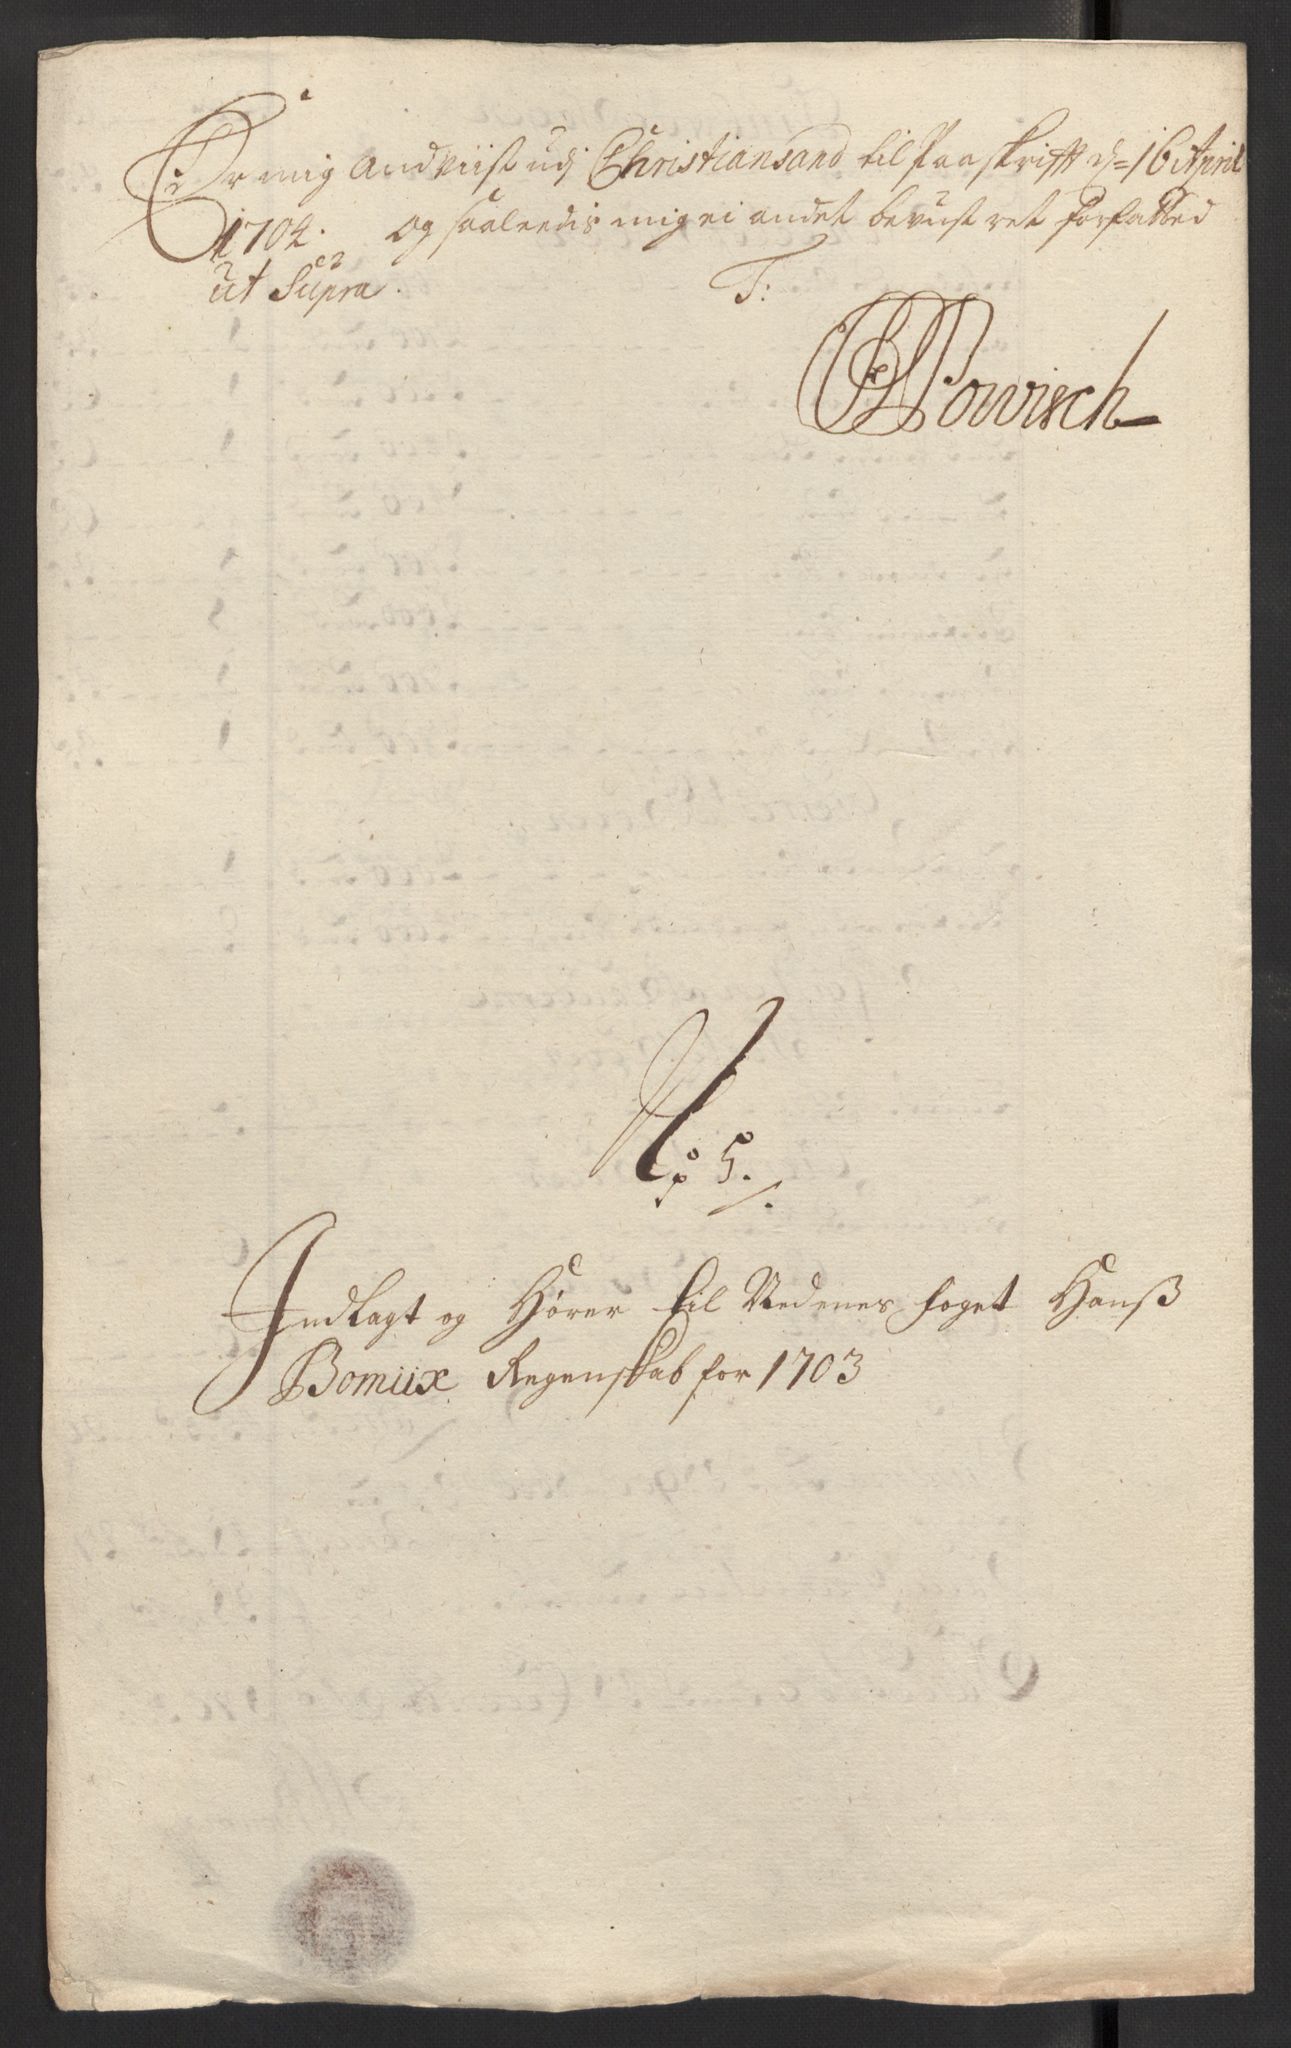 Er mig andviist udj Christiansand til Paaskrifft d= 16 April
1704. og saaleedis mig ei andet bevust ret forfatted
ut Supra. T:
Powisch
No 5.
Indlagt og Hörer til Nedenes foget Hanß
Bomüx Regenskab for 1703